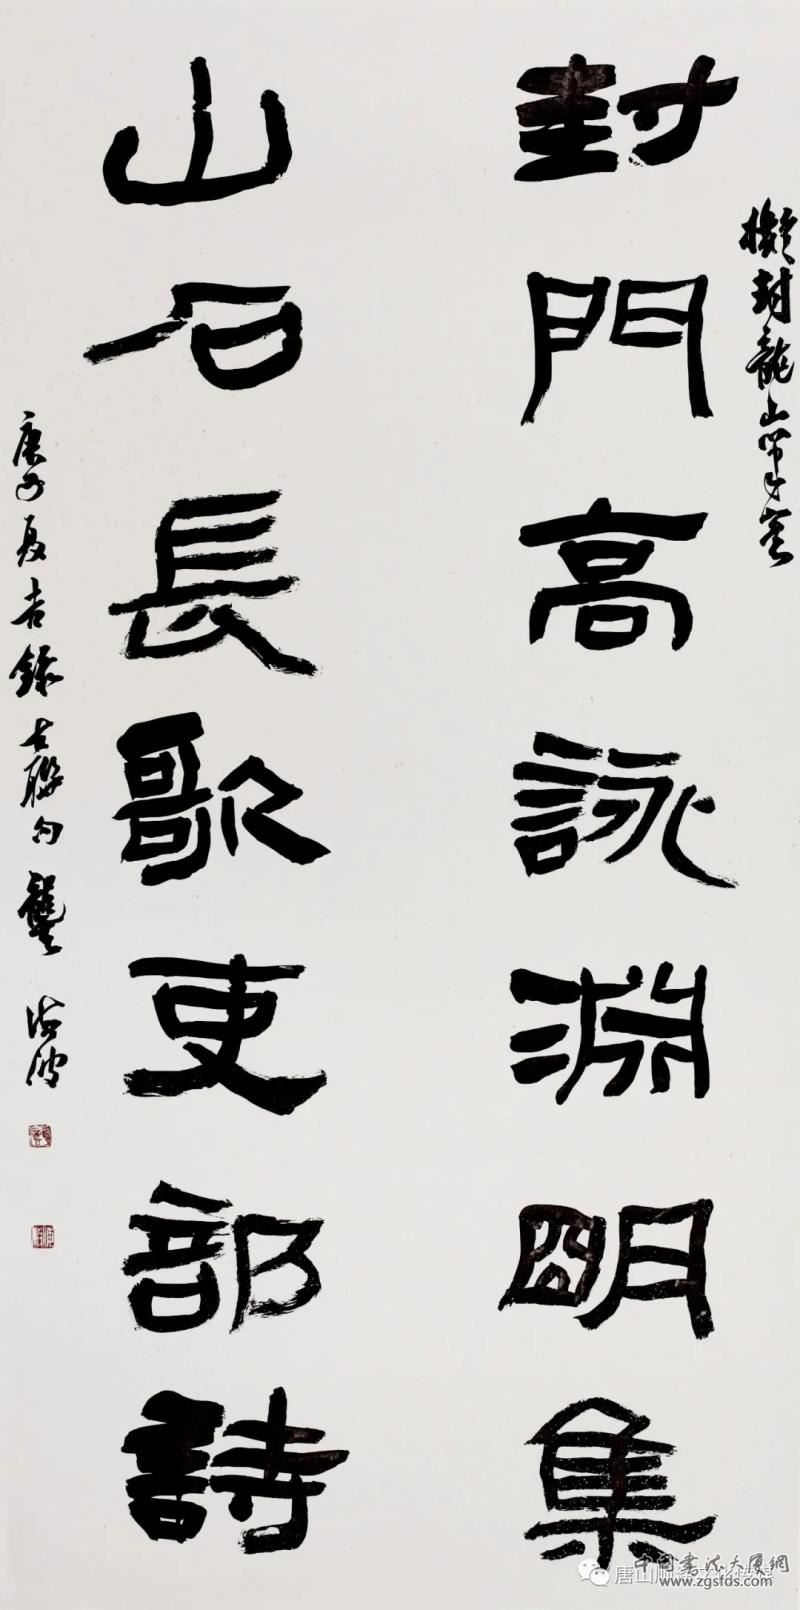 擬封龍山筆意
封門高詠淵明集
山石長歌吏部詩
庚子夏吉錄古聯句龔波
中国書法大厦網
唐山
www.zgsfds.com